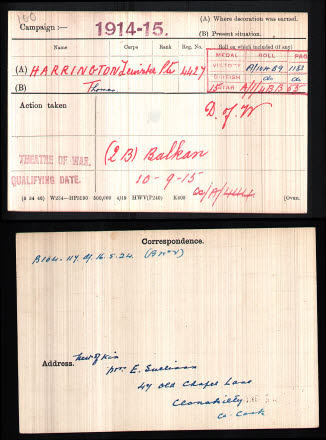 Campaign :— 1914-15.
(A) Where decoration was earned.
(B) Present situation.
Name Corps Rank Reg. No. Roll on which included (if any)
MEDAL ROLL PAGE
(A) HARRINGTON Leinster Pte 4427
VICTORY
BRITISH do do
(B) Thomas
15 STAR
Action taken
D. of W
THEATRE OF WAR. (2B) Balkan
QUALIFYING DATE. 10-9-15
(6 34 46) W234—HP5590 500,000 4/19 HWV(P240) K608
[Over.
Correspondence.
Address.
Next of Kin
Mrs. E. Sullivan
47 Old Chapel Lane
Clonakilty
Co. Cork